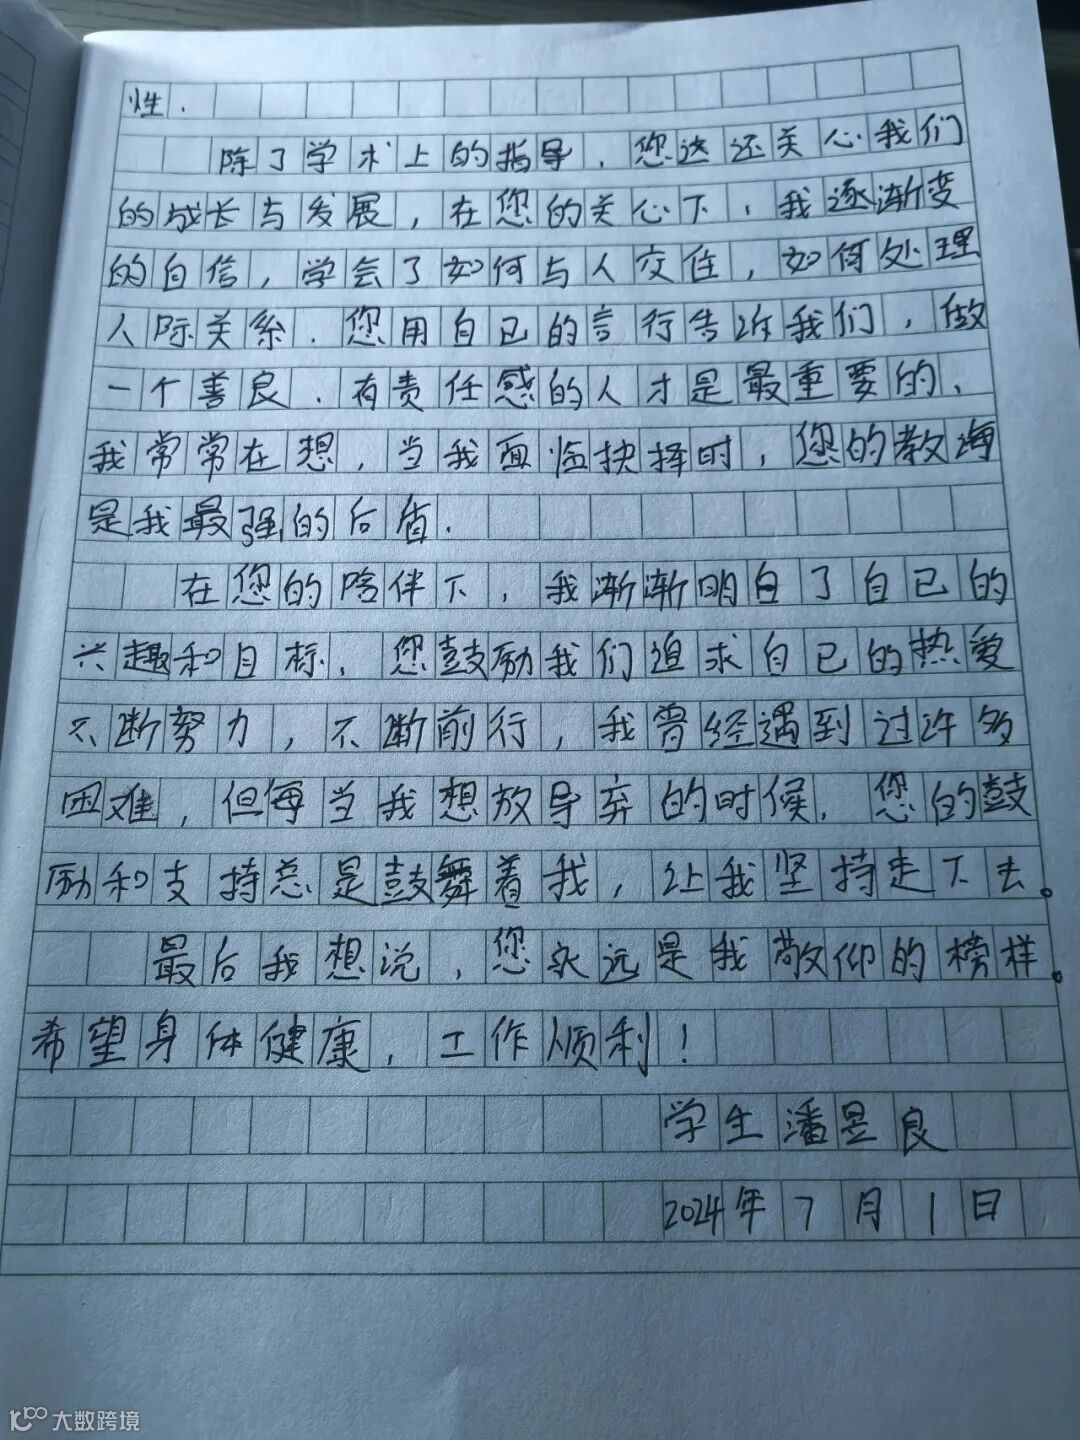 性.
除了学术上的指导.您这还关心我们
的成长与发展,在您的关心下,我逐渐变
的自信,学会了如何与人交往,如何处理
人际关系.您用自己的言行告诉我们,做
一个善良.有责任感的人才是最重要的.
我常常在想,当我面临抉择时,您的教诲
是我最强的后盾.
在您的陪伴下,我渐渐明白了自己的
兴趣和目标.您鼓励我们追求自己的热爱
不断努力,不断前行,我曾经遇到过许多
困难,但每当我想放导弃的时候.您的鼓
励和支持总是鼓舞着我,让我坚持走下去。
最后我想说,您永远是我敬仰的榜样。
希望身体健康,工作顺利!
学生潘昱良
2024年7月1日
大数跨境